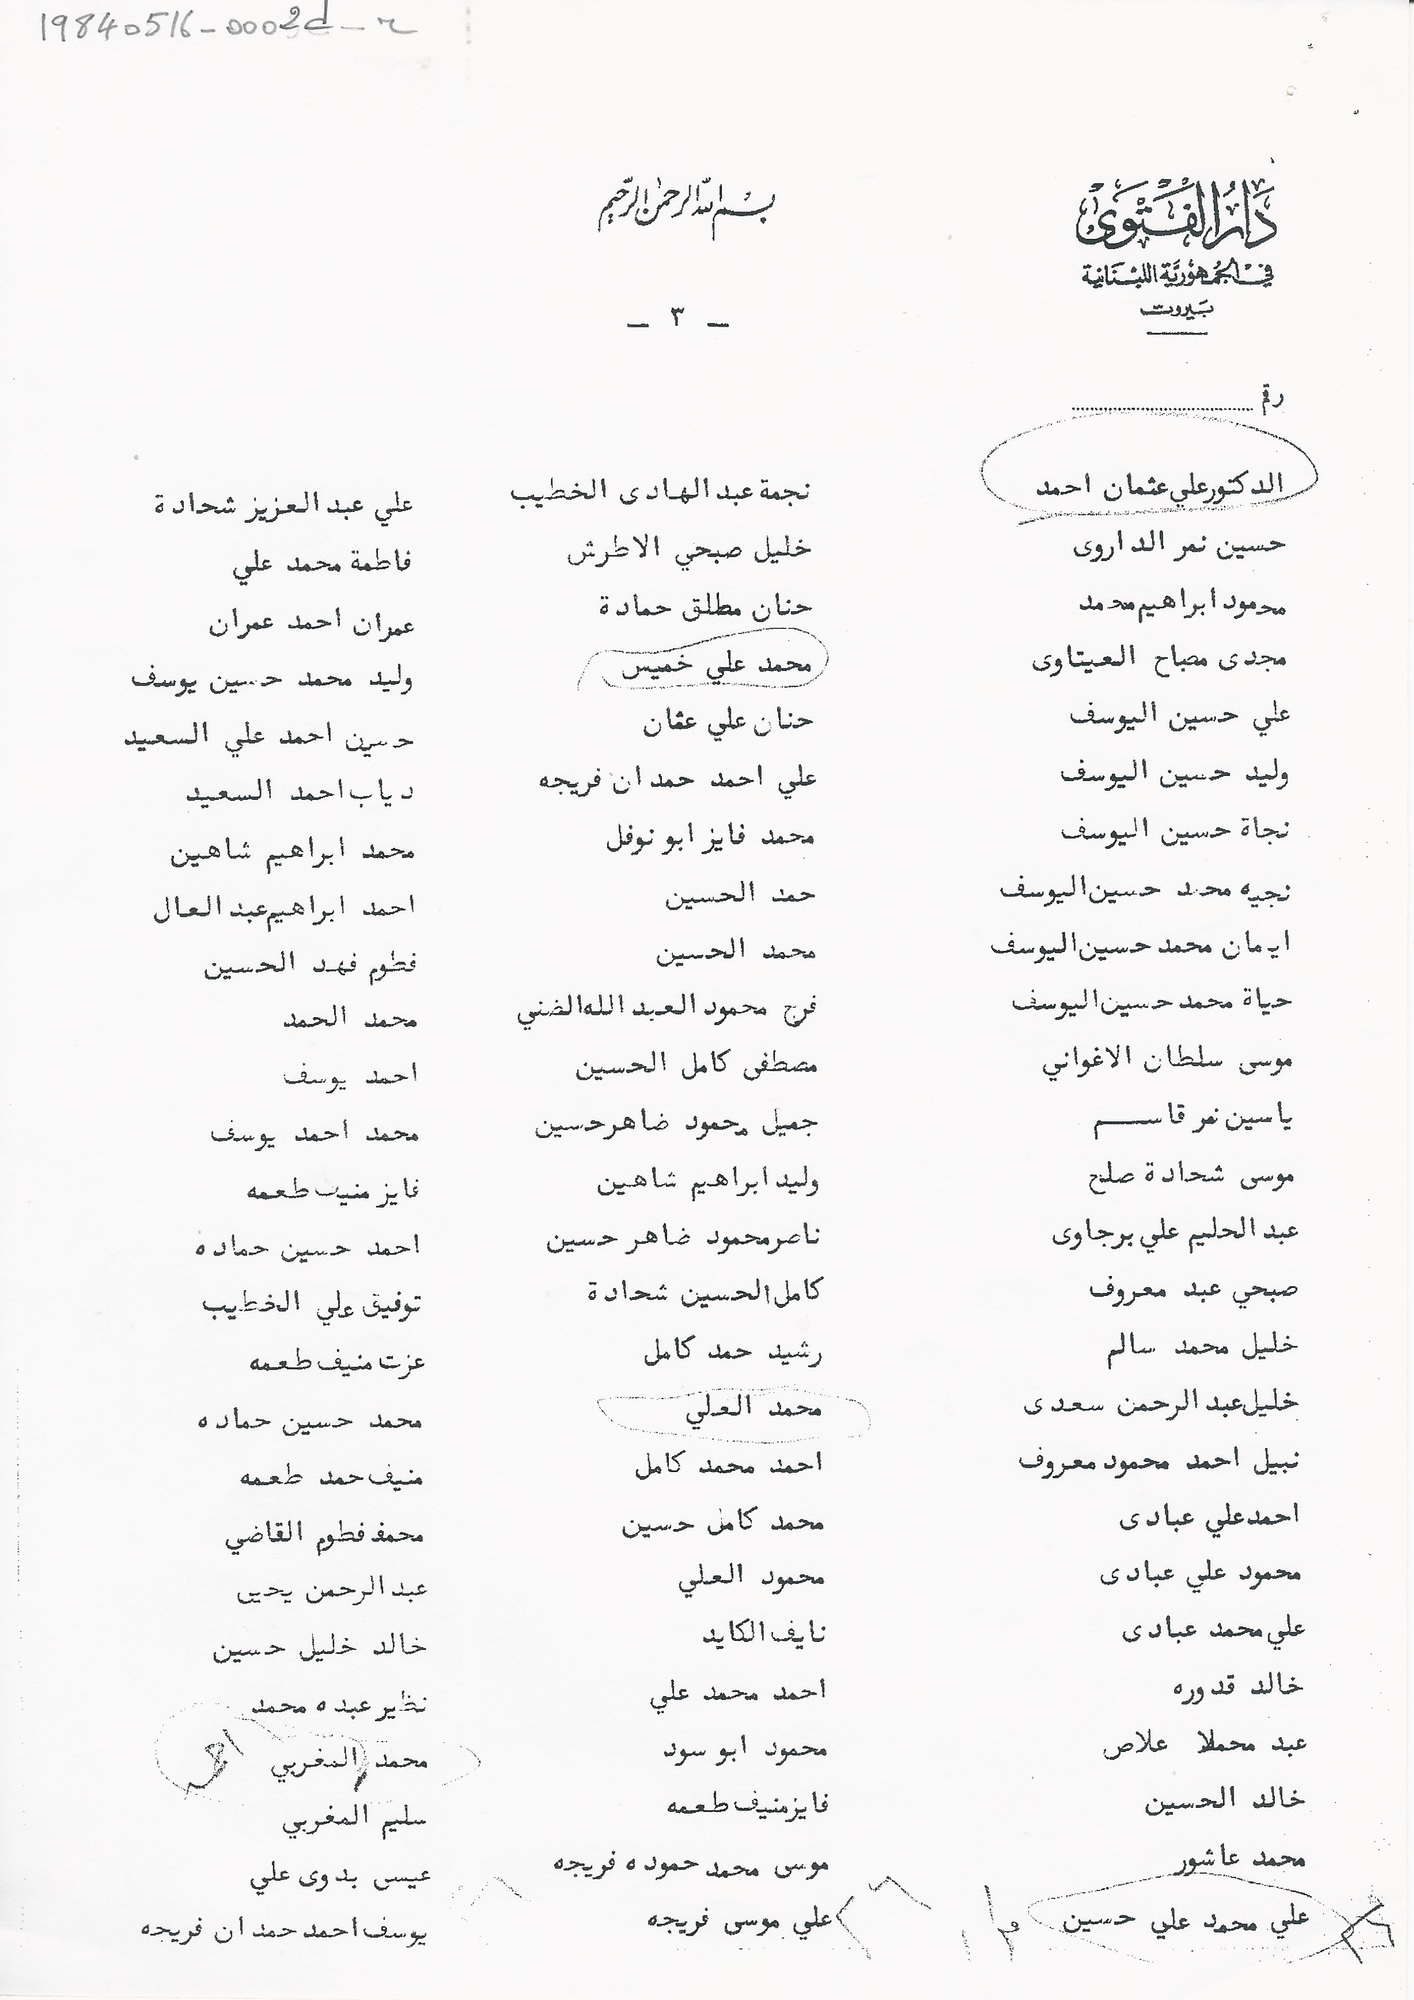 19840516-0002d-r
دار الفتوى
في الجمهورية اللبنانية
بيروت
بسم الله الرحمن الرحيم
- ٣ -
رقم
الدكتور علي عثمان احمد
حسين نمر الداروى
محمود ابراهيم محمد
مجدى مصباح العيتاوى
علي حسين اليوسف
وليد حسين اليوسف
نجاة حسين اليوسف
نجيه محمد حسين اليوسف
ايمان محمد حسين اليوسف
حياة محمد حسين اليوسف
موسى سلطان الاغواني
ياسين نمر قاسم
موسى شحادة صلح
عبد الحليم علي برجاوى
صبحي عبد معروف
خليل محمد سالم
خليل عبد الرحمن سعدى
نبيل احمد محمود معروف
احمد علي عبادى
محمود علي عبادى
علي محمد عبادى
خالد قدوره
عبد محملا علاص
خالد الحسين
محمد عاشور
علي محمد علي حسين
نجمة عبد الهادى الخطيب
خليل صبحي الاطرش
حنان مطلق حمادة
محمد علي خميس
حنان علي عثمان
علي احمد حمدان فريجه
محمد فايز ابو نوفل
حمد الحسين
محمد الحسين
فرج محمود العبد الله الضني
مصطفى كامل الحسين
جميل محمود ضاهر حسين
وليد ابراهيم شاهين
ناصر محمود ضاهر حسين
كامل الحسين شحادة
رشيد حمد كامل
محمد العلي
احمد محمد كامل
محمد كامل حسين
محمود العلي
نايف الكايد
احمد محمد علي
محمود ابو سود
فايز منيف طعمه
موسى محمد حموده فريجه
علي موسى فريجه
علي عبد العزيز شحادة
فاطمة محمد علي
عمران احمد عمران
وليد محمد حسين يوسف
حسين احمد علي السعيد
دياب احمد السعيد
محمد ابراهيم شاهين
احمد ابراهيم عبد العال
فطوم فهد الحسين
محمد الحمد
احمد يوسف
محمد احمد يوسف
فايز منيف طعمه
احمد حسين حماده
توفيق علي الخطيب
عزت منيف طعمه
محمد حسين حماده
منيف حمد طعمه
محمد فطوم القاضي
عبد الرحمن يحيى
خالد خليل حسين
نظير عبده محمد
محمد المغربي
سليم المغربي
عيسى بدوى علي
يوسف احمد حمدان فريحه